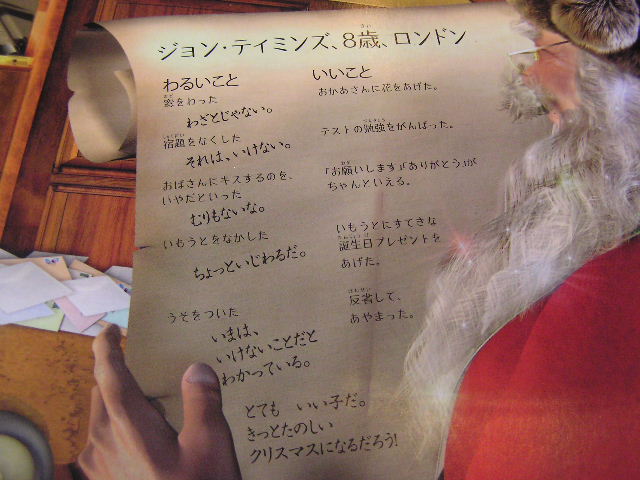 ジョン・ティミンズ、8歳、ロンドン
わるいこと
窓をわった
わざとじゃない。
宿題をなくした
それは、いけない。
おばさんにキスするのを、
いやだといった
むりもないな。
いもうとをなかした
ちょっといじわるだ。
うそをついた
いまは、
いけないことだと
わかっている。
いいこと
おかあさんに花をあげた。
テストの勉強をがんばった。
「お願いします」「ありがとう」が
ちゃんといえる。
いもうとにすてきな
誕生日プレゼントを
あげた。
反省して、
あやまった。
とても いい子だ。
きっとたのしい
クリスマスになるだろう!